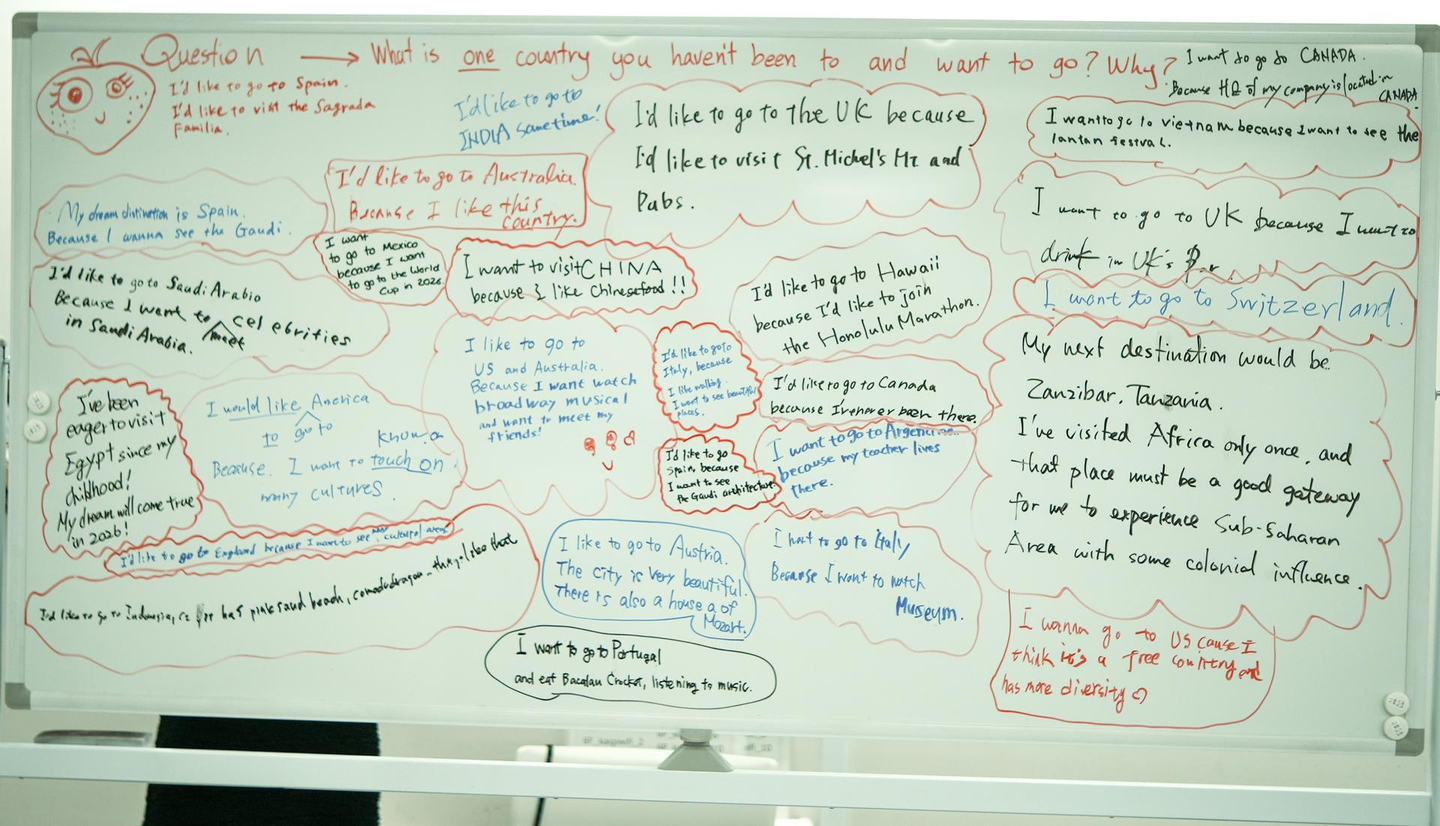 Question → What is one country you haven't been to and want to go? Why?
I'd like to go to Spain.
I'd like to visit the Sagrada
Familia.
I'd like to go to
INDIA sometime!
I'd like to go to the UK because
I'd like to visit St. Michel's Mt. and
Pubs.
I want to go to CANADA.
Because HQ of my company is located in
CANADA
I want to go to vietnam because I want to see the
lantan festival.
My dream distination is Spain.
Because I wanna see the Gaudi.
I'd like to go to Australia.
Because I like this
country.
I want
to go to Mexico
because I want
to go to the World
Cup in 2026.
I want to visit CHINA
because I like Chinese food!!
I want to go to UK because I want to
drink in UK's
I'd like to go to Saudi Arabio
Because I want to meet celebrities
in Saudi Arabia.
I'd like to go to Hawaii
because I'd like to join
the Honolulu Marathon.
I want to go to Switzerland.
I like to go to
US and Australia.
Because I want watch
broadway musical
and want to meet my
friends!
I'd like to go to
Italy, because
I like walking.
I want to see beautiful
places.
I'd like to go to Canada
because I renever been there.
My next destination would be
Zanzibar, Tanzania.
I've visited Africa only once, and
that place must be a good gateway
for me to experience Sub-Saharan
Area with some colonial influence.
I've been
eager to visit
Egypt since my
childhood!
My dream will come true
in 2026!
I would like America
to go to
know a
Because. I want to touch on
many cultures.
I'd like to go
Spain because
I want to see
the Gaudi architecture
I want to go to
because my teacher lives
there.
I'd like to go to England because I want to see cultural
I'd like to go to Indonesia, pink sand beach,
I like to go to Austria.
The city is very beautiful.
There is also a house of
Mozart.
I want to go to Italy
Because I want to watch
Museum.
I want to go to Portugal
and eat Bacalau Crocket, listening to music.
I wanna go to US cause I
think it's a free country and
has more diversity